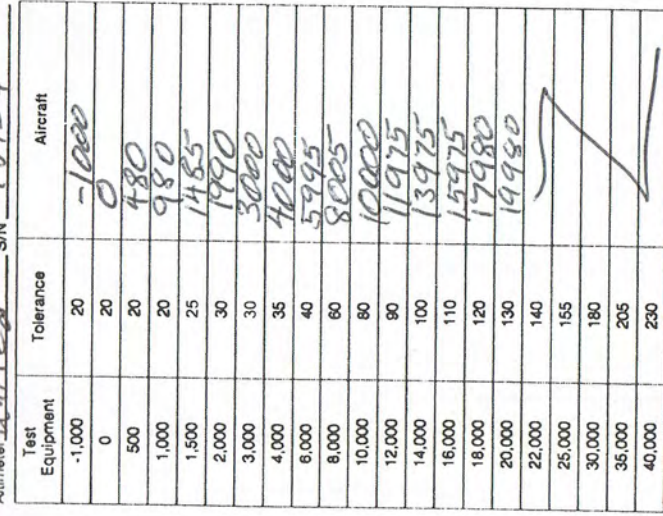 Altimeter S/N
Test Equipment Tolerance Aircraft
-1,000 20 -1000
0 20 0
500 20 480
1,000 20 980
1,500 25 1485
2,000 30 1990
3,000 30 3000
4,000 35 4000
6,000 40 5995
8,000 60 8005
10,000 80 10000
12,000 90 11975
14,000 100 13975
16,000 110 15975
18,000 120 17980
20,000 130 19980
22,000 140
25,000 155
30,000 180
35,000 205
40,000 230